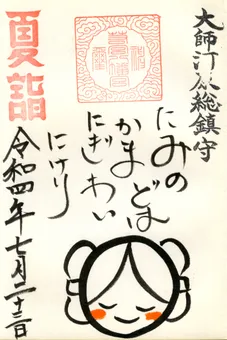 大師河原総鎮守
たみの
かまどは
にぎわい
にけり
夏詣
令和四年七月二十三日